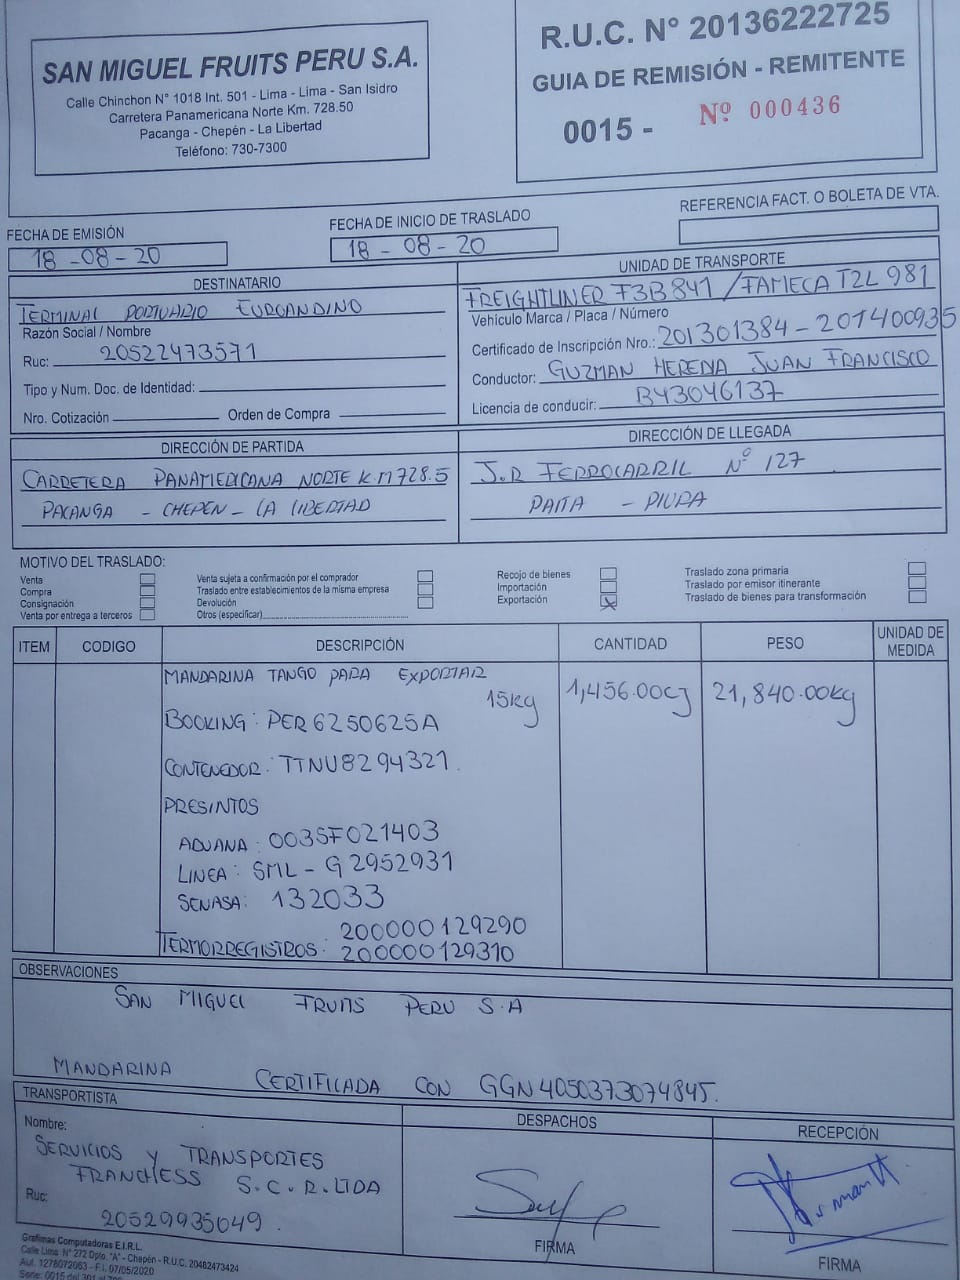 SAN MIGUEL FRUITS PERU S.A.
Calle Chinchon N° 1018 Int. 501 - Lima - Lima - San Isidro
Carretera Panamericana Norte Km. 728.50
Pacanga - Chepén - La Libertad
Teléfono: 730-7300
R.U.C. N° 20136222725
GUIA DE REMISIÓN - REMITENTE
0015 - Nº 000436
FECHA DE EMISIÓN
18-08-20
FECHA DE INICIO DE TRASLADO
18-08-20
REFERENCIA FACT. O BOLETA DE VTA.
DESTINATARIO
TERMINAL PORTUARIO EUROANDINO
Razón Social / Nombre
Ruc: 20522473571
Tipo y Num. Doc. de Identidad:
Nro. Cotización Orden de Compra
UNIDAD DE TRANSPORTE
FREIGHTLINER F3B841 / FAMECA T2L 981
Vehículo Marca / Placa / Número
Certificado de Inscripción Nro.: 201301384-201400935
Conductor: GUZMAN HEREDIA JUAN FRANCISCO
Licencia de conducir: B43046137
DIRECCIÓN DE PARTIDA
CARRETERA PANAMERICANA NORTE K.M 728.5
PACANGA - CHEPEN - LA LIBERTAD
DIRECCIÓN DE LLEGADA
J.R FERROCARRIL Nº 127
PAITA - PIURA
MOTIVO DEL TRASLADO:
Venta
Compra
Consignación
Venta por entrega a terceros
Venta sujeta a confirmación por el comprador
Traslado entre establecimientos de la misma empresa
Devolución
Otros (especificar)
Recojo de bienes
Importación
Exportación X
Traslado zona primaria
Traslado por emisor itinerante
Traslado de bienes para transformación
ITEM CODIGO DESCRIPCIÓN CANTIDAD PESO UNIDAD DE MEDIDA
MANDARINA TANGO PARA EXPORTAR
15kg 1,456.00CJ 21,840.00kg
BOOKING: PER6250625A
CONTENEDOR: TTNU8294321.
PRESINTOS
ADUANA: 003SF021403
LINEA: SML-G2952931
SENASA: 132033
200000129290
TERMORREGISTROS: 200000129310
OBSERVACIONES
SAN MIGUEL FRUITS PERU S.A
MANDARINA CERTIFICADA CON GGN 4050373074845.
TRANSPORTISTA
Nombre:
SERVICIOS Y TRANSPORTES
FRANCHESS S.C.R.LTDA
Ruc:
20529935049.
DESPACHOS
FIRMA
RECEPCIÓN
FIRMA
Grafimas Computadoras E.I.R.L.
Calle Lima N° 272 Dpto. "A" - Chepén - R.U.C. 20482473424
Aut. 1278072063 - F.I. 07/05/2020
Serie: 0015 del 301 al